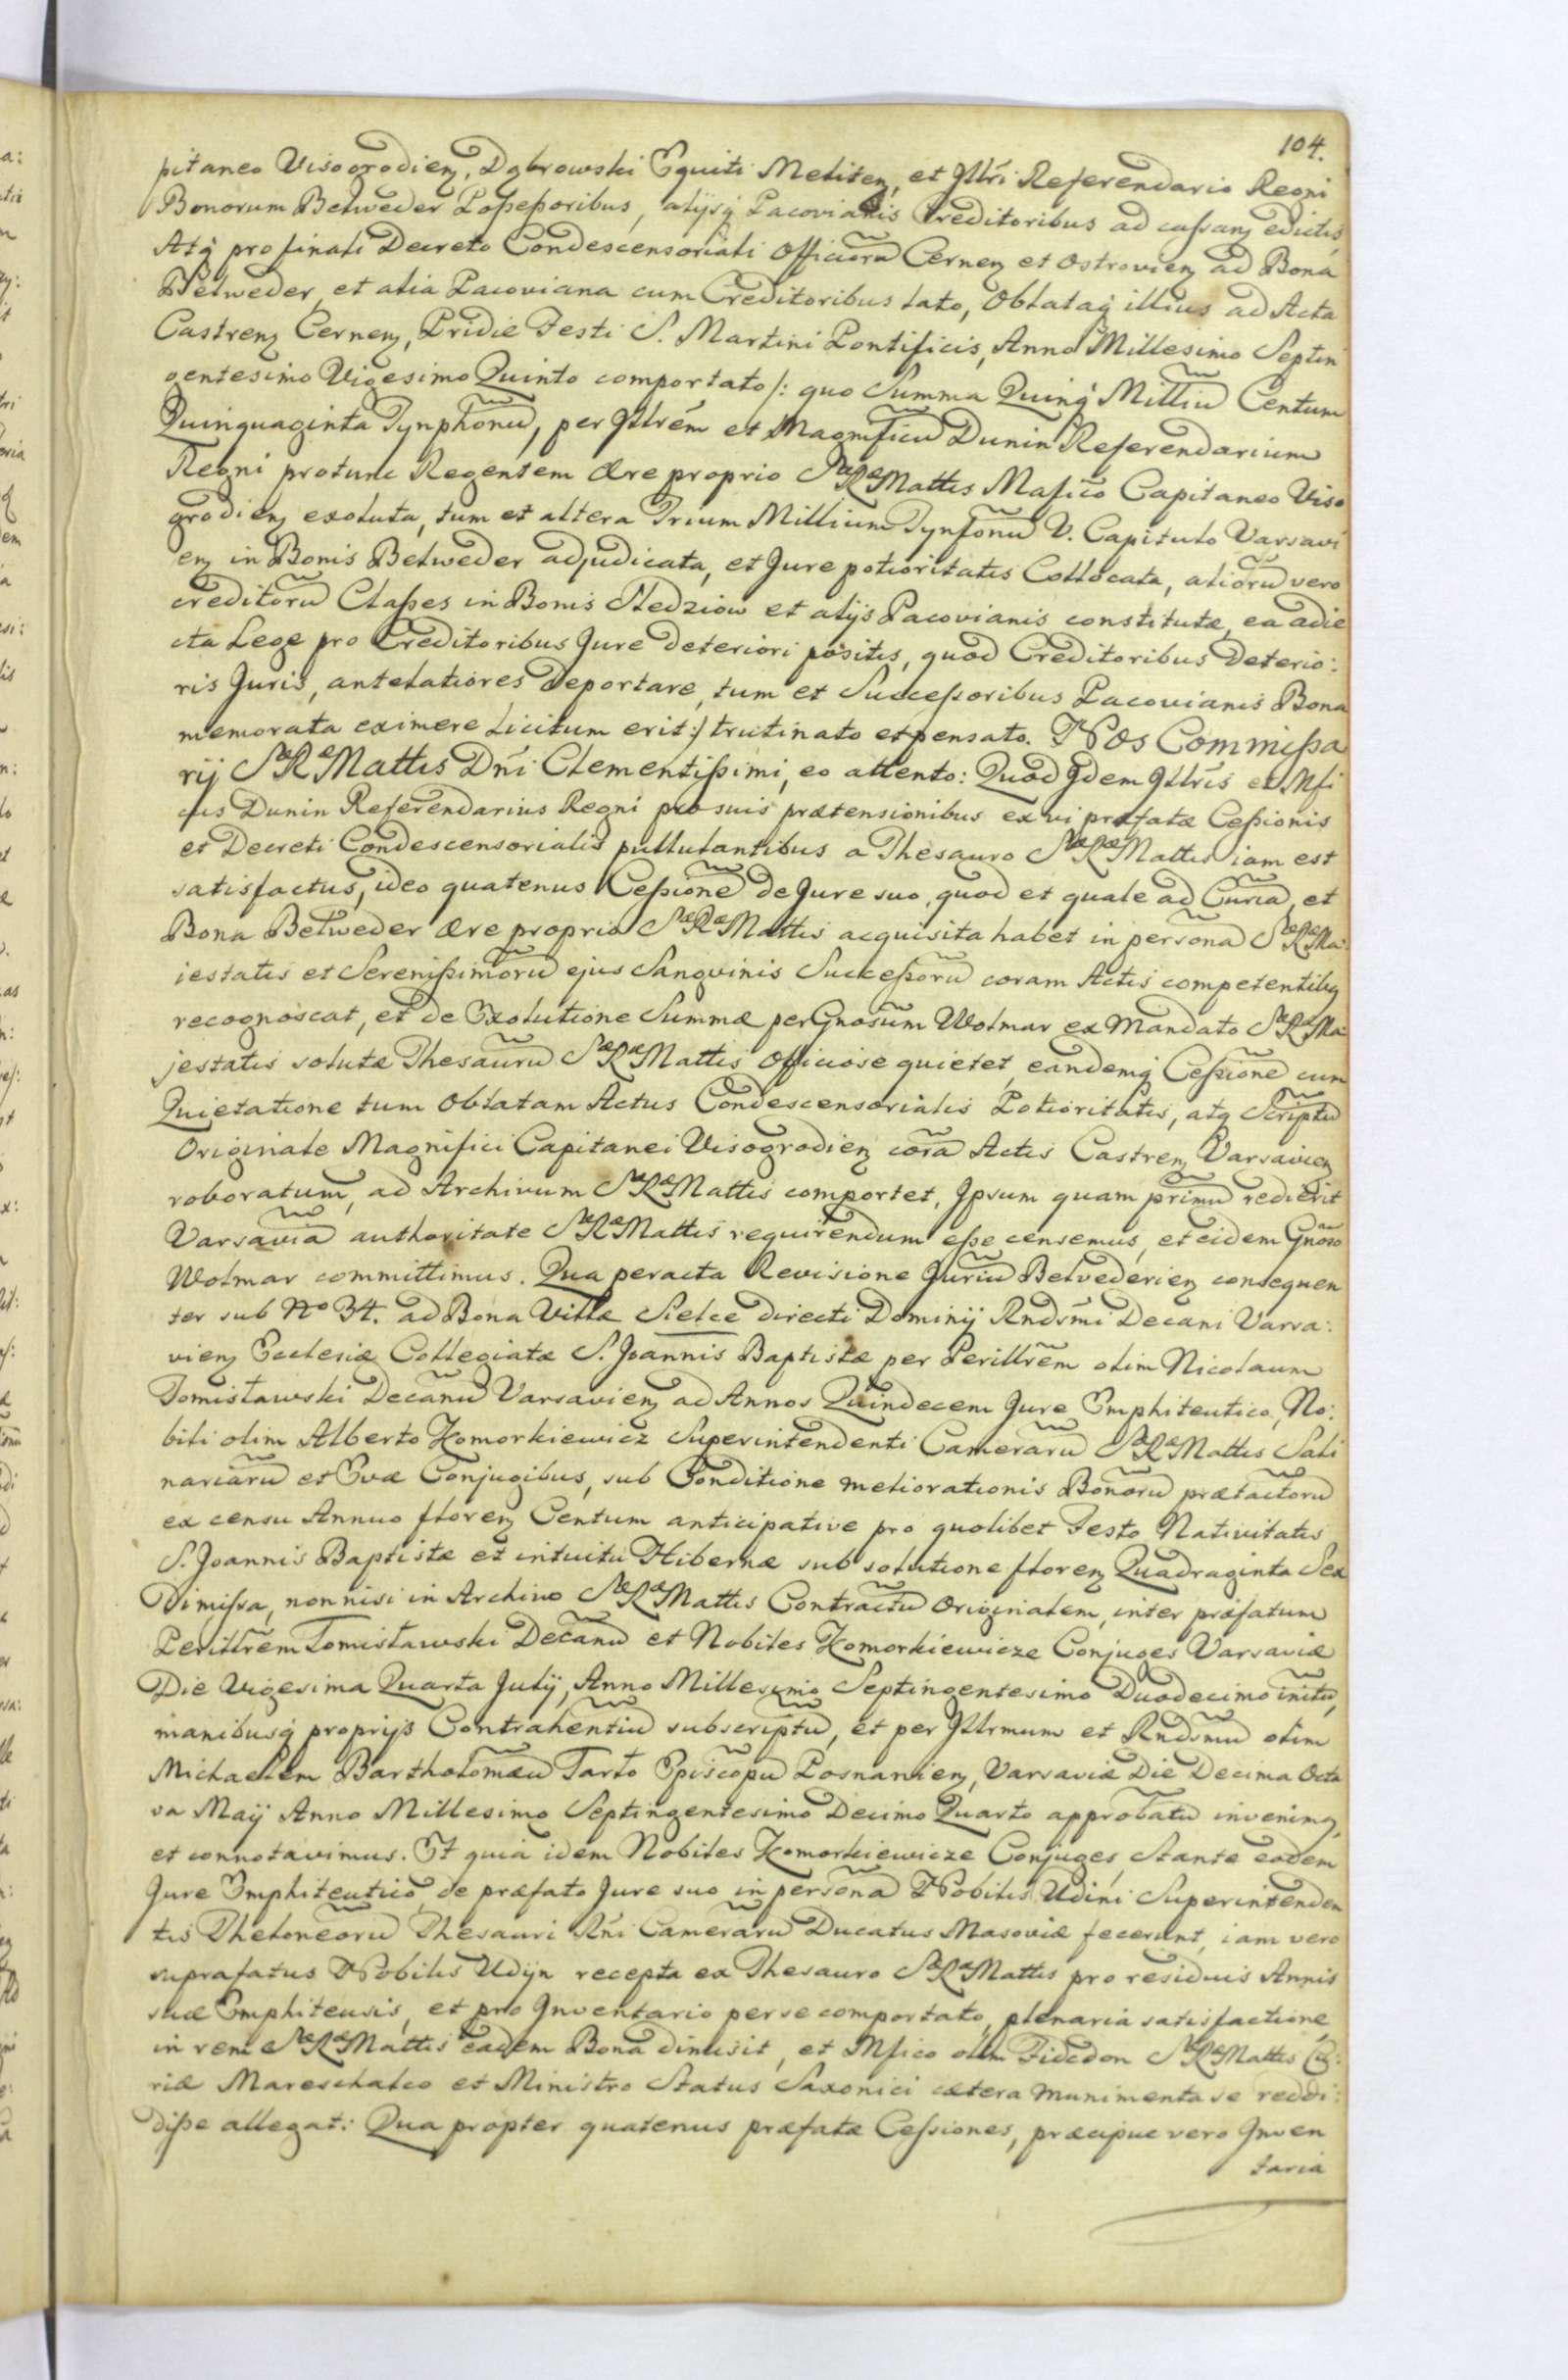 104.
pitaneo Visogrodien, Dąbrowski Equiti Meliten, et Jllri Referendario Regni
Bonorum Belweder Poßeßoribus, alijsq Pacovianis Creditoribus ad caſsan edictis,
Atq pro finali Decreto Condescensoriali Officiorũ Cernen et Ostrovien ad Bona
Belweder, et alia Pacoviana cum Creditoribus lato, Oblataq illius ad Acta
Castren Cernen, Pridie Festi S. Martini Pontificis, Anno Millesimo Septin
gentesimo Vigesimo Quinto comportato /: quo Summa Quinq Milliũ Centum
Quinquaginta Tynphonũ, per Jllrẽm et Magnificũ Dunin Referendarium
Regni protunc Regentem Ære proprio SæRæMattis Mafico Capitaneo Viso
grodien exoluta, tum et altera Trium Millium Tynfonũ V. Capitulo Varsavi
en in Bonis Belweder adjudicata, et Jure potioritatis Collocata, aliorũ vero
creditorũ Claßes in Bonis Stedziow et alijs Pacovianis constitutæ, ea adie
cta Lege pro Creditoribus Jure deteriori positis, quod Creditoribus Deterio:
ris Juris, antelatiores deportare, tum et Succeſsoribus Pacovianis Bona
memorata eximere Licitum erit:/ trutinato et pensato. Nos Commißa
rij SæRæMattis Dñi Clementißimi, eo attento: Quod Jdem Jllris et Mfi
cus Dunin Referendarius Regni pro suis prætensionibus ex vi præfatæ Ceßionis
et Decreti Condescensorialis pullulantibus a Thesauro SæRæMattis iam est
satisfactus, ideo quatenus Ceßionẽ de Jure suo, quod et quale ad Curiã, et
Bona Belweder Ære proprio SæRæMattis acquisita habet in personã SæRæMa:
iestatis et Serenißimorũ ejus Sangvinis Succeßorũ coram Actis competentibq
recognoscat, et de Exolutione Summæ per Gnosũm Wolmar ex Mandato SæRæMa:
jestatis solutæ Thesaurũ SæRæMattis Officiose quietet, eandemq Ceßionẽ cum
Quietatione tum Oblatam Actus Condescensorialis Potioritatis, atq Scriptũ
Originale Magnifici Capitanei Visogrodien corã Actis Castren Varsavien
roboratum, ad Archivum SæRæMattis comportet, Jpsum quam primũ redierit
Varsaviã authoritate SæRæMattis requirendum eße censemus, et eidem Gnõso
Wolmar committimus. Qua peracta Revisione Juriũ Belvederien consequen
ter sub No 34. ad Bona Villæ Sielce directi Dominij Rndsm̃i Decani Varsa:
vien Ecclesiæ Collegiatæ S. Joannis Baptistæ per Perillrẽm olim Nicolaum
Tomisławski Decanũ Varsavien ad Annos Quindecem Jure Emphiteutico, No:
bili olim Alberto Komorkiewicz Superintendenti Camerarũ SæRæMattis Sali
nariarũ et Evæ Conjugibus, sub Conditione meliorationis Bonorũ prætactorũ
ex censu Annuo floren Centum anticipative pro quolibet Festo Nativitatis
S. Joannis Baptistæ et intuitu Hibernæ sub solutione floren Quadraginta Sex
Dimißa, non nisi in Archivo SæRæMattis Contractũ Originalem, inter præfatum
Perillrẽm Tomisławski Decanũ et Nobiles Komorkiewicze Conjuges Varsaviæ
Die Vigesima Quarta Julij, Anno Millesimo Septingentesimo Duodecimo initũ,
manibusq proprijs Contrahentiũ subscriptũ, et per Jllrmum et Rndsmũ olim
Michaelem Bartholomæũ Tarło Episcopũ Posnanien, Varsaviæ Die Decima Octa
va Maij Anno Millesimo Septingentesimo Decimo Quarto approbatũ invenimq,
et connotavimus. Et quia idem Nobiles Komorkiewicze Conjuges, Stante eodem
Jure Emphiteutico, de præfato Jure suo in personã Nobilis Udini Superintenden
tis Theloneorũ Thesauri Rñi Camerarũ Ducatus Masoviæ fecerunt, iam vero
suprafatus Nobilis Udyn recepta ex Thesauro SæRæMattis pro residuis Annis
suæ Emphiteusis, et pro Jnventario per se comportato, plenaria satisfactione,
in rem SæRæMattis eadem Bona dimisit, et Mfico olim Fidedon SæRæMattis Cu:
riæ Mareschalco et Ministro Status Saxonici cætera munimenta se reddi:
diße allegat: Qua propter quatenus præfatæ Ceſsiones, præcipue vero Jnven
taria